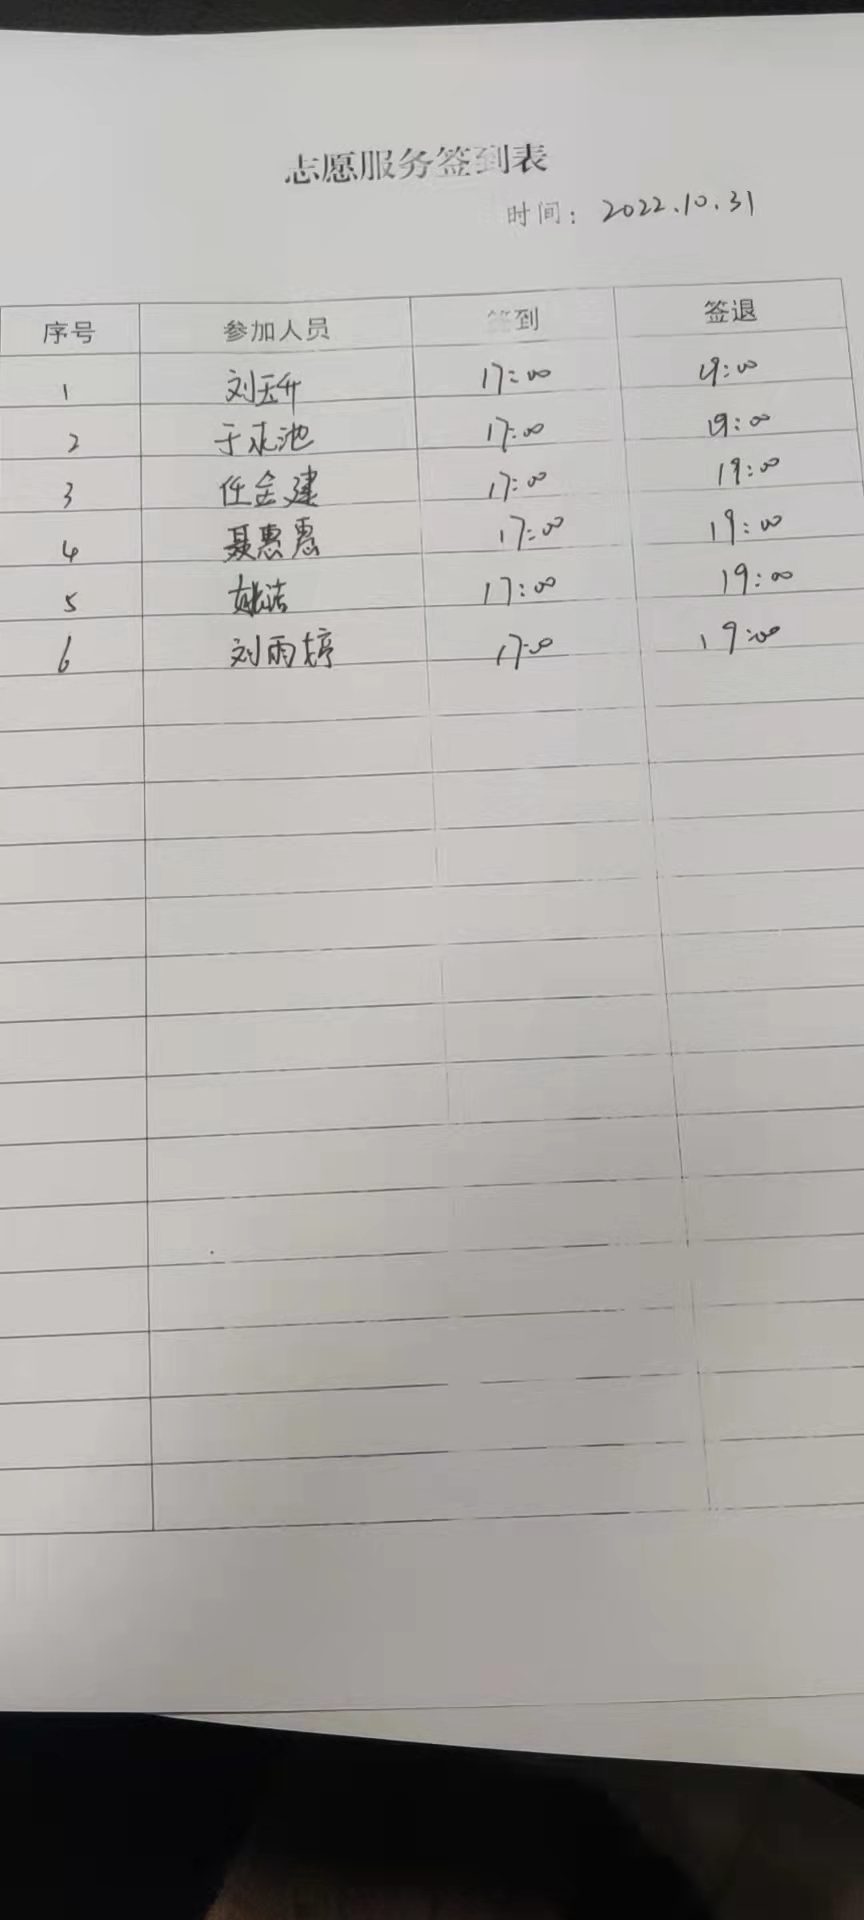 志愿服务签到表
时间: 2022.10.31
序号 参加人员 签到 签退
1 刘天升 17:00 19:00
2 于永池 17:00 19:00
3 任金建 17:00 19:00
4 聂惠惠 17:00 19:00
5 姚洁 17:00 19:00
6 刘雨婷 17:00 19:00